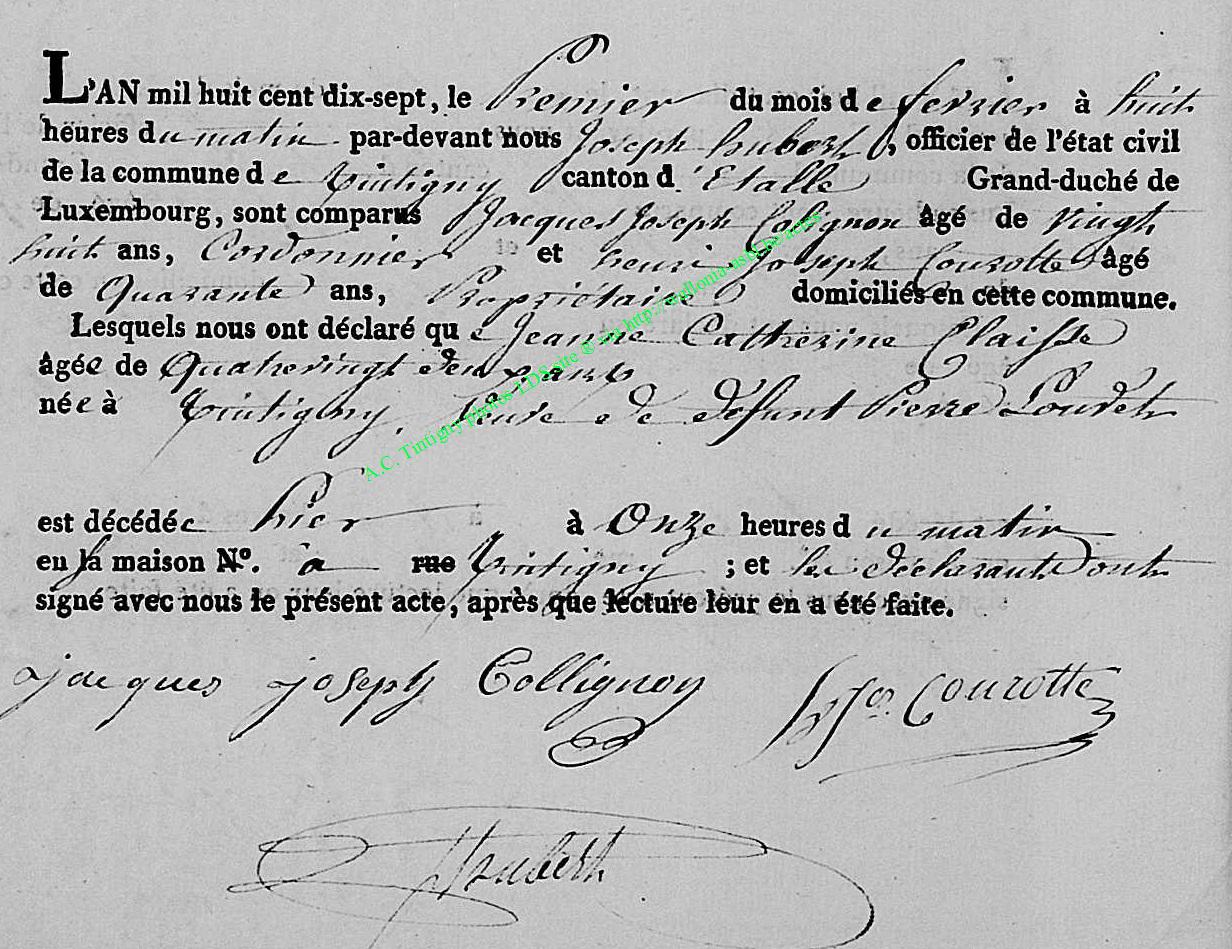 L'AN mil huit cent dix-sept, le Premier du mois de fevrier à huit
heures du matin par-devant nous Joseph hubert, officier de l'état civil
de la commune de tintigny canton d'Etalle Grand-duché de
Luxembourg, sont comparus Jacques Joseph Colignon âgé de vingt
huit ans, Cordonnier et henri Joseph Courotte âgé
de Quarante ans, Propriétaire domiciliés en cette commune.
Lesquels nous ont déclaré que Jeanne Catherine Claisse
âgée de Quatrevingt deux ans
née à tintigny, veuve de défunt Pierre Loudet
est décédée hier à Onze heures du matin
en sa maison No. a rue tintigny ; et les déclarants ont
signé avec nous le présent acte, après que lecture leur en a été faite.
jacques joseph Collignon
hJos. Courotte
JHubert
A.C. Tintigny photos LDS site @ via http://wallonia-asbl.be/actes